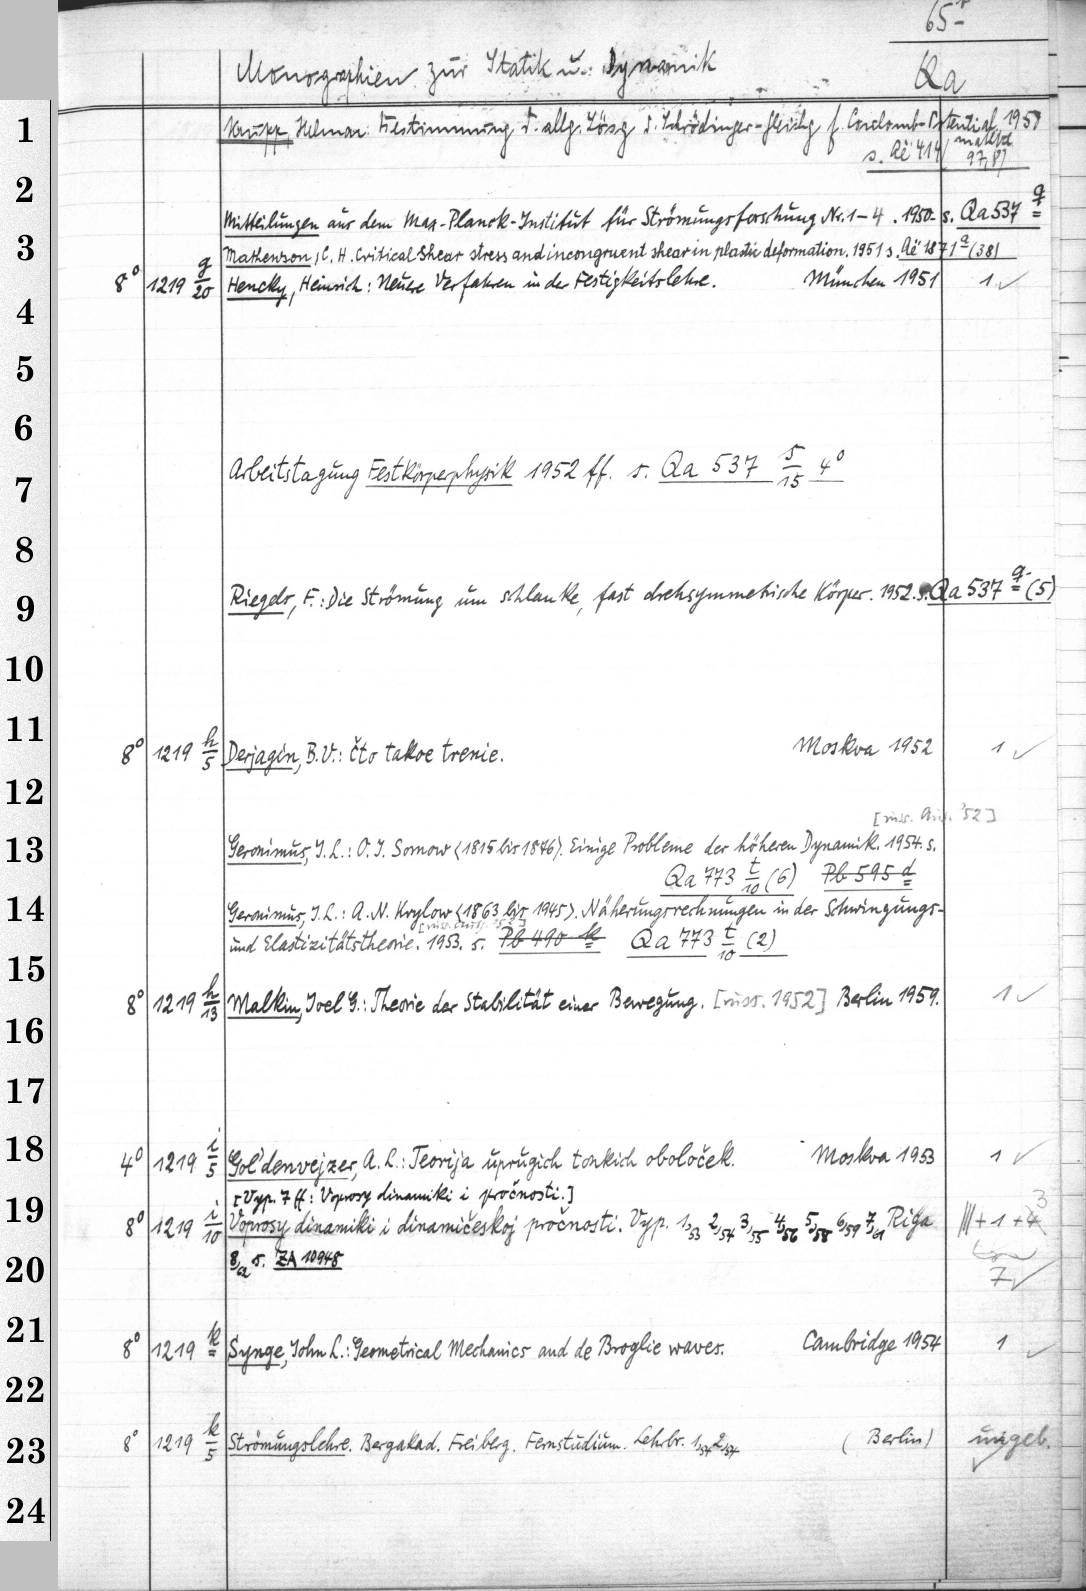 65r
Monographien zur Statik u. Dynamik Qa
1 Krupp, Helmar: Bestimmung d. allg. Lösg d. Schrödinger-Gleichg f. Coulomb-Potential 1950
s. Aë 414
2
Mitteilungen aus dem Max-Planck-Institut für Strömungsforschung Nr. 1-4. 1950- s. Qa 537 q
3 Mathewson, C. H. Critical Shear stress and incongruent shear in plastic deformation. 1951 s. Aë 1871 a (38)
8° 1219 g/20 Hencky, Heinrich: Neuere Verfahren in der Festigkeitslehre. München 1951 1 ✓
4
5
6
Arbeitstagung Festkörperphysik 1952 ff. s. Qa 537 s/15 4°
7
8
Riegels, F.: Die Strömung um schlanke, fast drehsymmetrische Körper. 1952. s. Qa 537 q (5)
9
10
11
8° 1219 h/5 Derjagin, B. V.: čto takoe trenie. Moskva 1952 1 ✓
12
[russ. Ausg. '52]
13 Geronimus, J. L.: O. J. Somow <1815 bis 1876>. Einige Probleme der höheren Dynamik. 1954. s.
Qa 773 t/10 (6) Pb 595 d
14 Geronimus, J. L.: A. N. Krylow <1863 bis 1945>. Näherungsrechnungen in der Schwingungs-
[russ. Ausg. '52]
und Elastizitätstheorie. 1953. s. Pb 490 k Qa 773 t/10 (2)
15
8° 1219 h/13 Malkin, Joel G.: Theorie der Stabilität einer Bewegung. [russ. 1952] Berlin 1959. 1 ✓
16
17
18
4° 1219 i/5 Gol'denvejzer, A. L.: Teorija uprugich tonkich oboloček. Moskva 1953 1 ✓
[Vyp. 7 ff: Voprosy dinamiki i pročnosti.]
19
8° 1219 i/10 Voprosy dinamiki i dinamičeskoj pročnosti. Vyp. 1/53 2/54 3/55 4/56 5/58 6/59 7/61 Riga III + 1 + 4 3
20 8/62 s. ZA 10948
7 ✓
21
8° 1219 k Synge, John L.: Geometrical Mechanics and de Broglie waves. Cambridge 1954 1 ✓
22
23 8° 1219 k/5 Strömungslehre. Bergakad. Freiberg. Fernstudium. Lehrbr. 1/54 2/54 (Berlin) ungeb. ✓
24